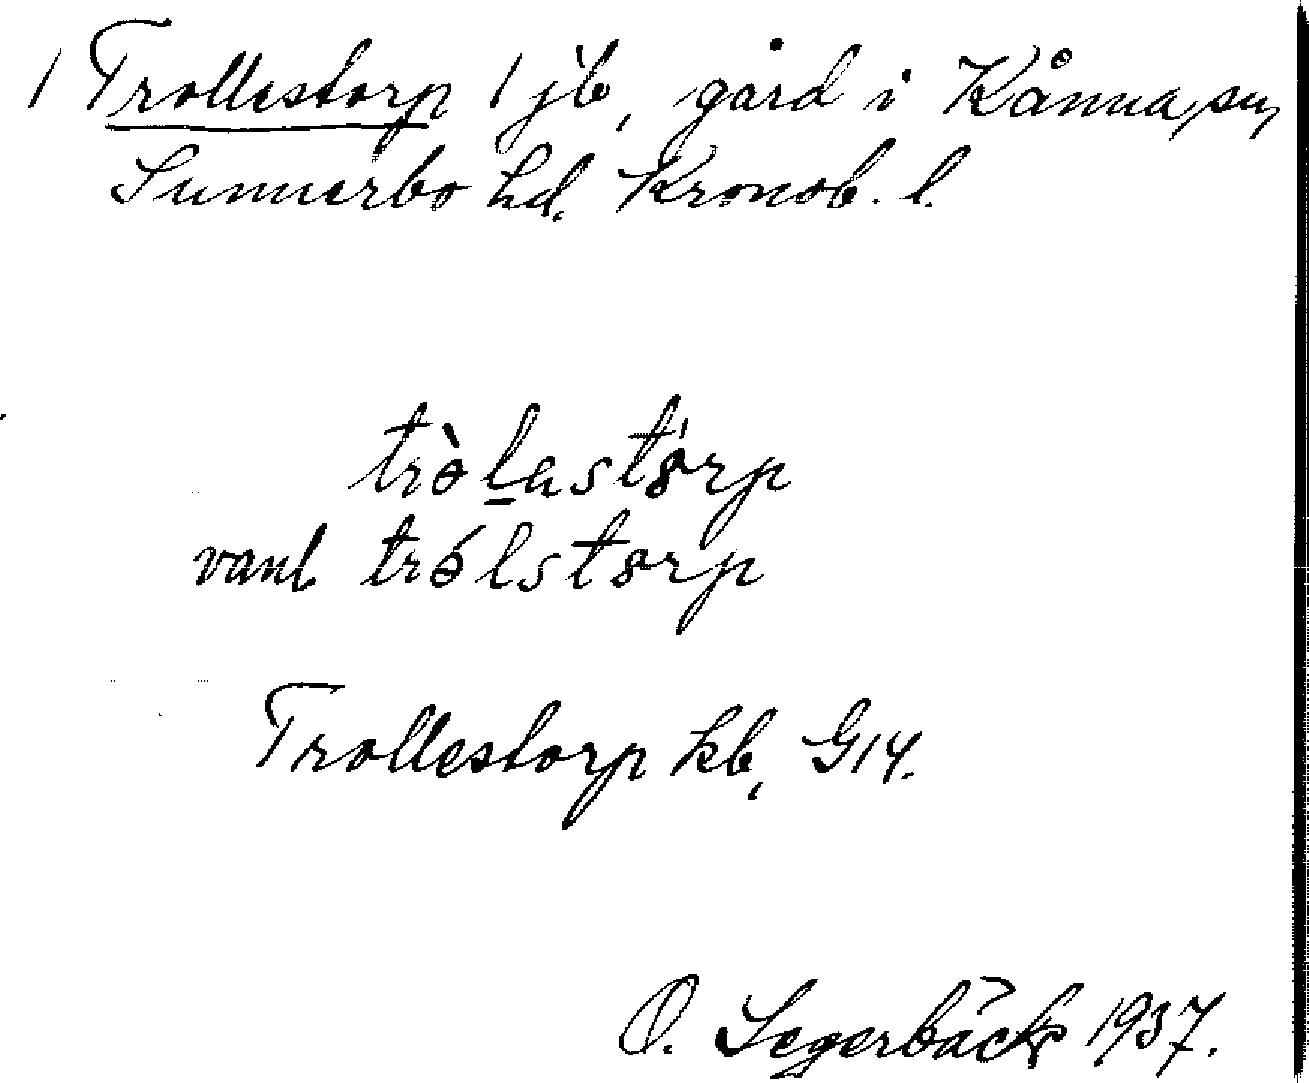 / Trollestorp / jb, gård i Kånna sn,
Sunnerbo hd. Kronob. l.
tròlastơrp
vanl. trólstorp
Trollestorp kb, G14.
O. Segerbäck 1937.